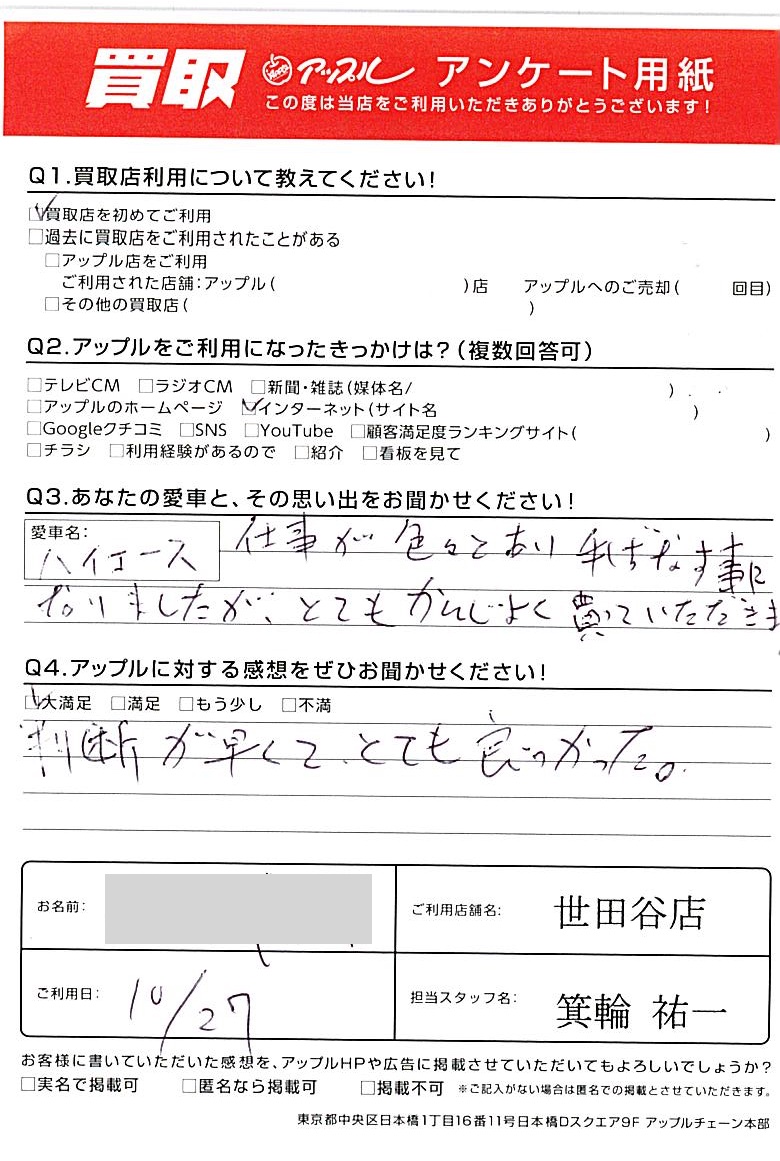 買取 アップル アンケート用紙
この度は当店をご利用いただきありがとうございます!
Q1.買取店利用について教えてください!
☑買取店を初めてご利用
□過去に買取店をご利用されたことがある
□アップル店をご利用
ご利用された店舗:アップル( )店 アップルへのご売却( 回目)
□その他の買取店( )
Q2.アップルをご利用になったきっかけは?(複数回答可)
□テレビCM □ラジオCM □新聞・雑誌(媒体名/ )
□アップルのホームページ ☑インターネット(サイト名 )
□Googleクチコミ □SNS □YouTube □顧客満足度ランキングサイト( )
□チラシ □利用経験があるので □紹介 □看板を見て
Q3.あなたの愛車と、その思い出をお聞かせください!
愛車名:
ハイエース 仕事が色々とあり 手ばなす事に
なりましたが、とてもかんじよく買ていただきま
Q4.アップルに対する感想をぜひお聞かせください!
☑大満足 □満足 □もう少し □不満
判断が早くて、とても良かった。
お名前: ご利用店舗名: 世田谷店
ご利用日: 10/27 担当スタッフ名: 箕輪 祐一
お客様に書いていただいた感想を、アップルHPや広告に掲載させていただいてもよろしいでしょうか?
□実名で掲載可 □匿名なら掲載可 □掲載不可 ※ご記入がない場合は匿名での掲載とさせていただきます。
東京都中央区日本橋1丁目16番11号日本橋Dスクエア9F アップルチェーン本部